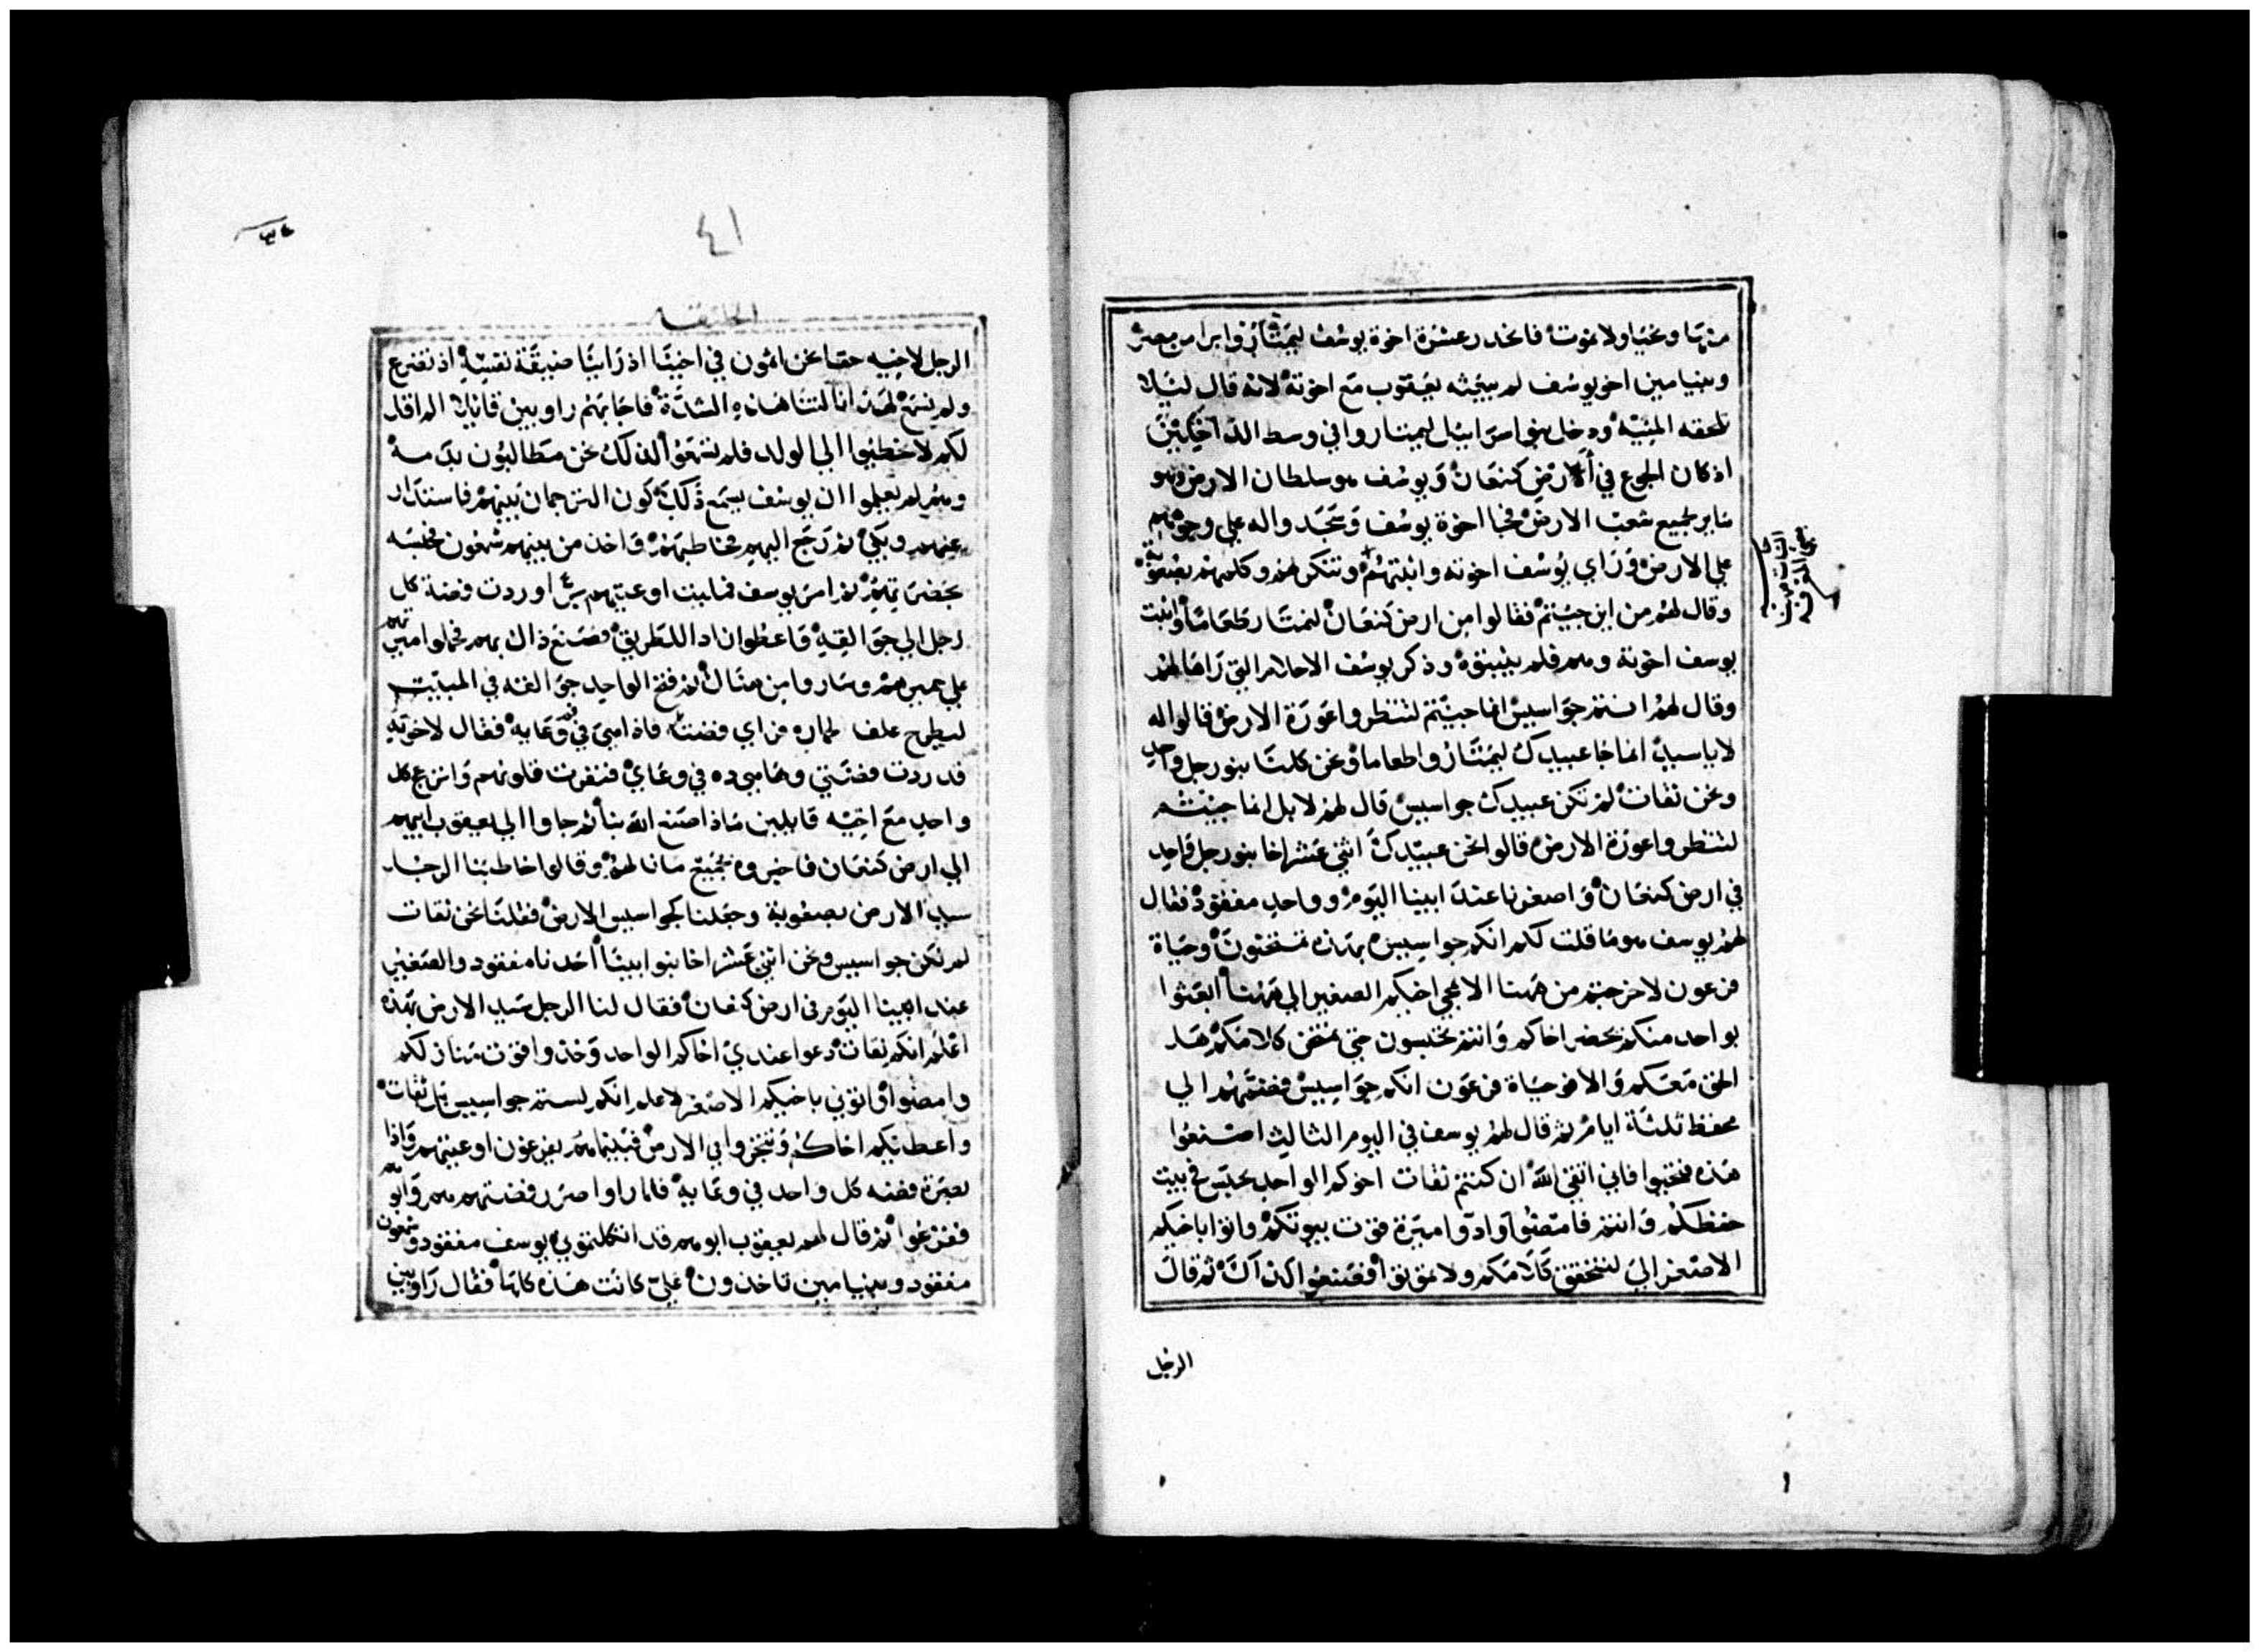 منها ونحيا ولا نموت فانحدر عشرة اخوة يوسف ليمتاروا برا من مصر
وبنيامين اخو يوسف لم يبعثه يعقوب مع اخوته لانه قال ليلا
تلحقه المنية ودخل بنو اسراييل ليمتاروا في وسط الداخلين
اذ كان الجوع في ارض كنعان ويوسف هو سلطان الارض وهو
ماير لجميع شعب الارض فجا اخوة يوسف وسجدوا له على وجوههم
على الارض وراي يوسف اخوته واثبتهم وتنكر لهم وكلمهم بصعوبة
وقال لهم من اين جيتم فقالوا من ارض كنعان لنمتار طعاما واثبت
يوسف اخوته وهم فلم يثبتوه وذكر يوسف الاحلام التي راها لهم
وقال لهم انتم جواسيس انما جيتم لتنظروا عورة الارض قالوا له
لا يا سيد انما جا عبيدك ليمتاروا طعاما ونحن كلنا بنو رجل واحد
ونحن ثقات لم تكن عبيدك جواسيس قال لهم لا بل انما جيتم
لتنظروا عورة الارض قالوا نحن عبيدك اثني عشر اخا بنو رجل واحد
في ارض كنعان واصغرنا عند ابينا اليوم وواحد مفقود فقال
لهم يوسف هو ما قلت لكم انكم جواسيس بهذه تمتحنون وحياة
فرعون لا خرجتم من ههنا الا بمجي اخيكم الصغير الي ههنا ابعثوا
بواحد منكم يحضر اخاكم وانتم تحتبسون حتى يمتحن كلامكم هل
الحق معكم والا فوحياة فرعون انكم جواسيس فضمهم الي
محفظ ثلثة ايام ثم قال لهم يوسف في اليوم الثالث اصنعوا
هذه فتحيوا فاني اتقي الله ان كنتم ثقات اخوكم الواحد يحتبس في بيت
حفظكم وانتم فامضوا وادوا ميرة قوت بيوتكم واتوا باخيكم
الاصغر الي لتتحقق كلامكم ولا تموتوا فصنعوا كذاك ثم قال
الرجل
٤١
الخليقه
الرجل لاخيه حقا نحن اثمون في اخينا اذ راينا ضيقة نفسه اذ تضرع
ولم نسمع لهذا نالتنا هذه الشدة فاجابهم راوبين قايلا الم اقل
لكم لا تخطيوا الي الولد فلم تسمعوا لذلك نحن مطالبون بدمه
وهم لم يعلموا ان يوسف يسمع ذلك كون الترجمان بينهم فاستدار
عنهم وبكى ثم رجع اليهم فخاطبهم واخذ من بينهم شمعون فحبسه
بحضرتهم ثم امر يوسف فمليت اوعيتهم برا وردت فضة كل
رجل الي جوالقه واعطوا زادا للطريق فصنع ذاك بهم فحملوا ميرتهم
علي حميرهم وساروا من هناك ثم فتح الواحد جوالقه في المبيت
ليطرح علف لحماره فراي فضته فاذا هي في فم وعايه فقال لاخوته
قد ردت فضتي وها هي ذه في وعاي فنفرت قلوبهم وانزعج كل
واحد مع اخيه قايلين ماذا صنع الله بنا ثم جاوا الي يعقوب ابيهم
الي ارض كنعان فاخبروه بجميع ما نالهم وقالوا خاطبنا الرجل
سيد الارض بصعوبة وجعلنا كجواسيس الارض فقلنا نحن ثقات
لم نكن جواسيس ونحن اثني عشر اخا بنوا ابينا احدنا مفقود والصغير
عند ابينا اليوم في ارض كنعان فقال لنا الرجل سيد الارض بهذه
اعلم انكم ثقات دعوا عندي اخاكم الواحد وخذوا قوت منازلكم
وامضوا واتوني باخيكم الاصغر لاعلم انكم لستم جواسيس بل ثقات
واعطيكم اخاكم وتتجروا في الارض فبينما هم يفرغون اوعيتهم واذا
بصرة فضه كل واحد في وعايه فلما راوا صرر فضتهم هم وابوهم
ففزعوا ثم قال لهم يعقوب ابوهم قد اثكلتموني يوسف مفقود وشمعون
مفقود وبنيامين تاخذون علي كانت هذه كلها فقال راوبين